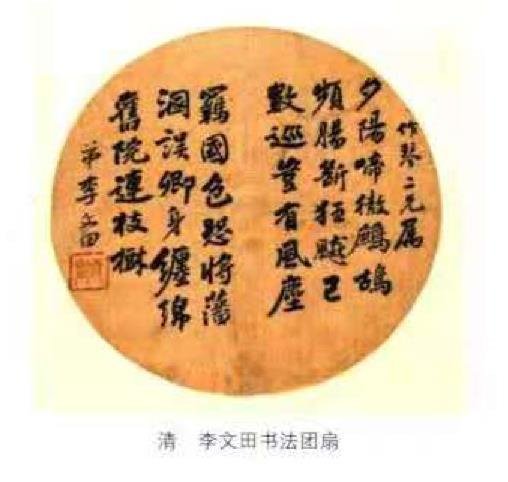 琴二兄属
夕陽啼徹鷓鴣
頻腸斷狂飈已
數巡豈有風塵
羈國色恐將藩
溷誤卿身纏綿
舊院連枝樹
弟李文田
清　李文田书法团扇